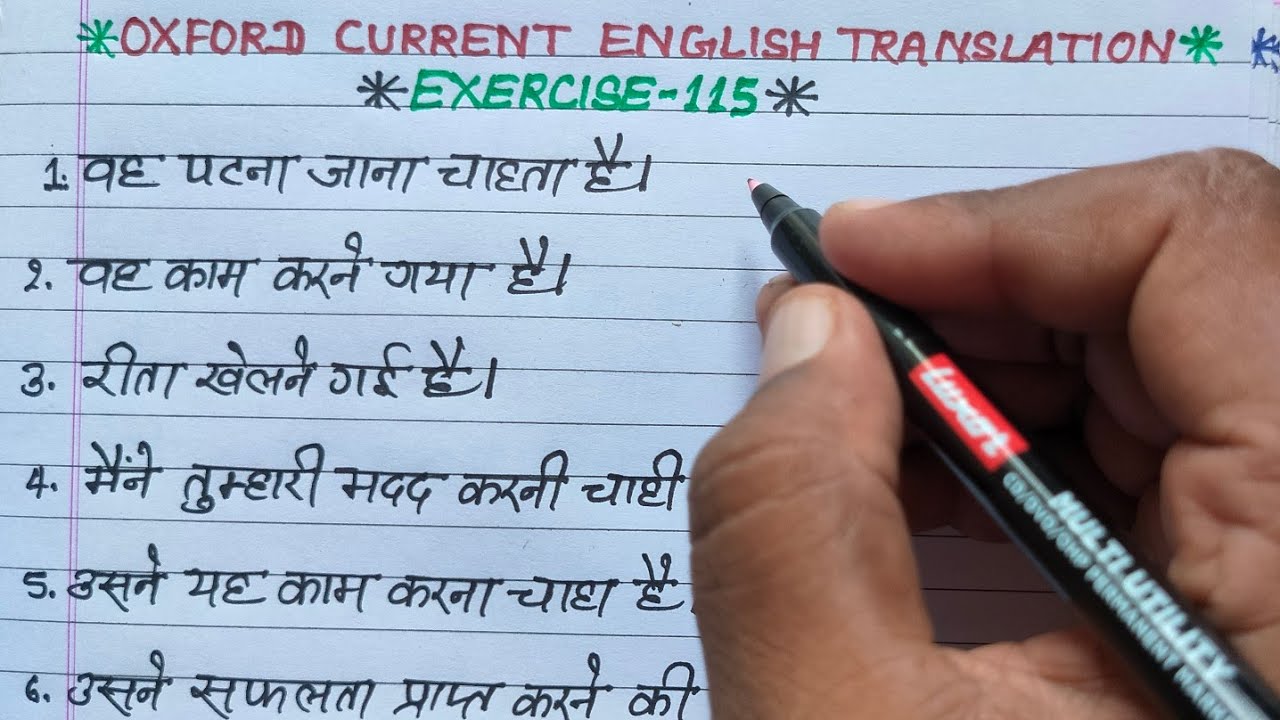 *OXFORD CURRENT ENGLISH TRANSLATION* *
*EXERCISE-115*
1. वह पटना जाना चाहता है।
२. वह काम करने गया है।
3. रीता खेलने गई है।
4. मैंने तुम्हारी मदद करनी चाही
5. उसने यह काम करना चाहा है
6. उसने सफलता प्राप्त करने की
Luxor
MULTI UTILITY
CD/DVD/OHP PERMANENT MARK